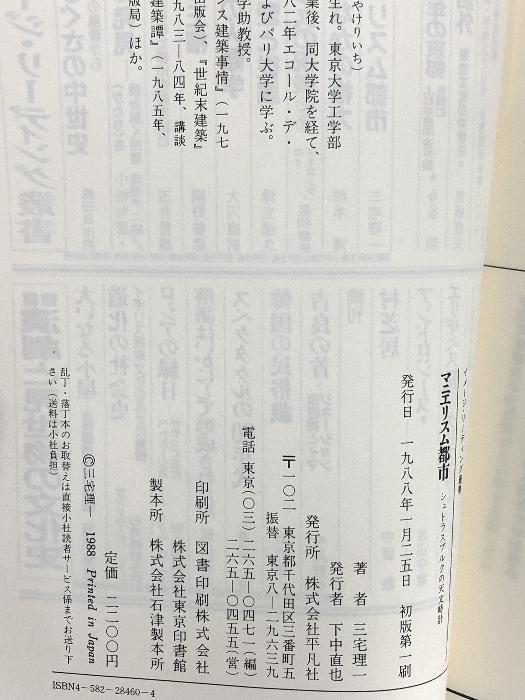 やけりいち)
生れ。東京大学工学部
業後、同大学院を経て、
八二年エコール・デ・
よびパリ大学に学ぶ。
学助教授。
ンス建築事情』(一九七
出版会)、『世紀末建築』
九八三—八四年、講談
建築譚』(一九八五年、
版局)ほか。
イメージ・リーディング叢書
マニエリスム都市 シュトラスブルクの天文時計
発行日 一九八八年一月二五日 初版第一刷
著者 三宅理一
発行者 下中直也
発行所 株式会社平凡社
〒一〇二 東京都千代田区三番町五
振替 東京八—二九六三九
電話 東京(〇三)二六五—〇四七一(編)
二六五—〇四五五(営)
印刷所 図書印刷株式会社
株式会社東京印書館
製本所 株式会社石津製本所
定価 二二〇〇円
©三宅理一 1988 Printed in Japan
乱丁・落丁本のお取替えは直接小社読者サービス係までお送り下
さい(送料は小社負担)
ISBN4-582-28460-4